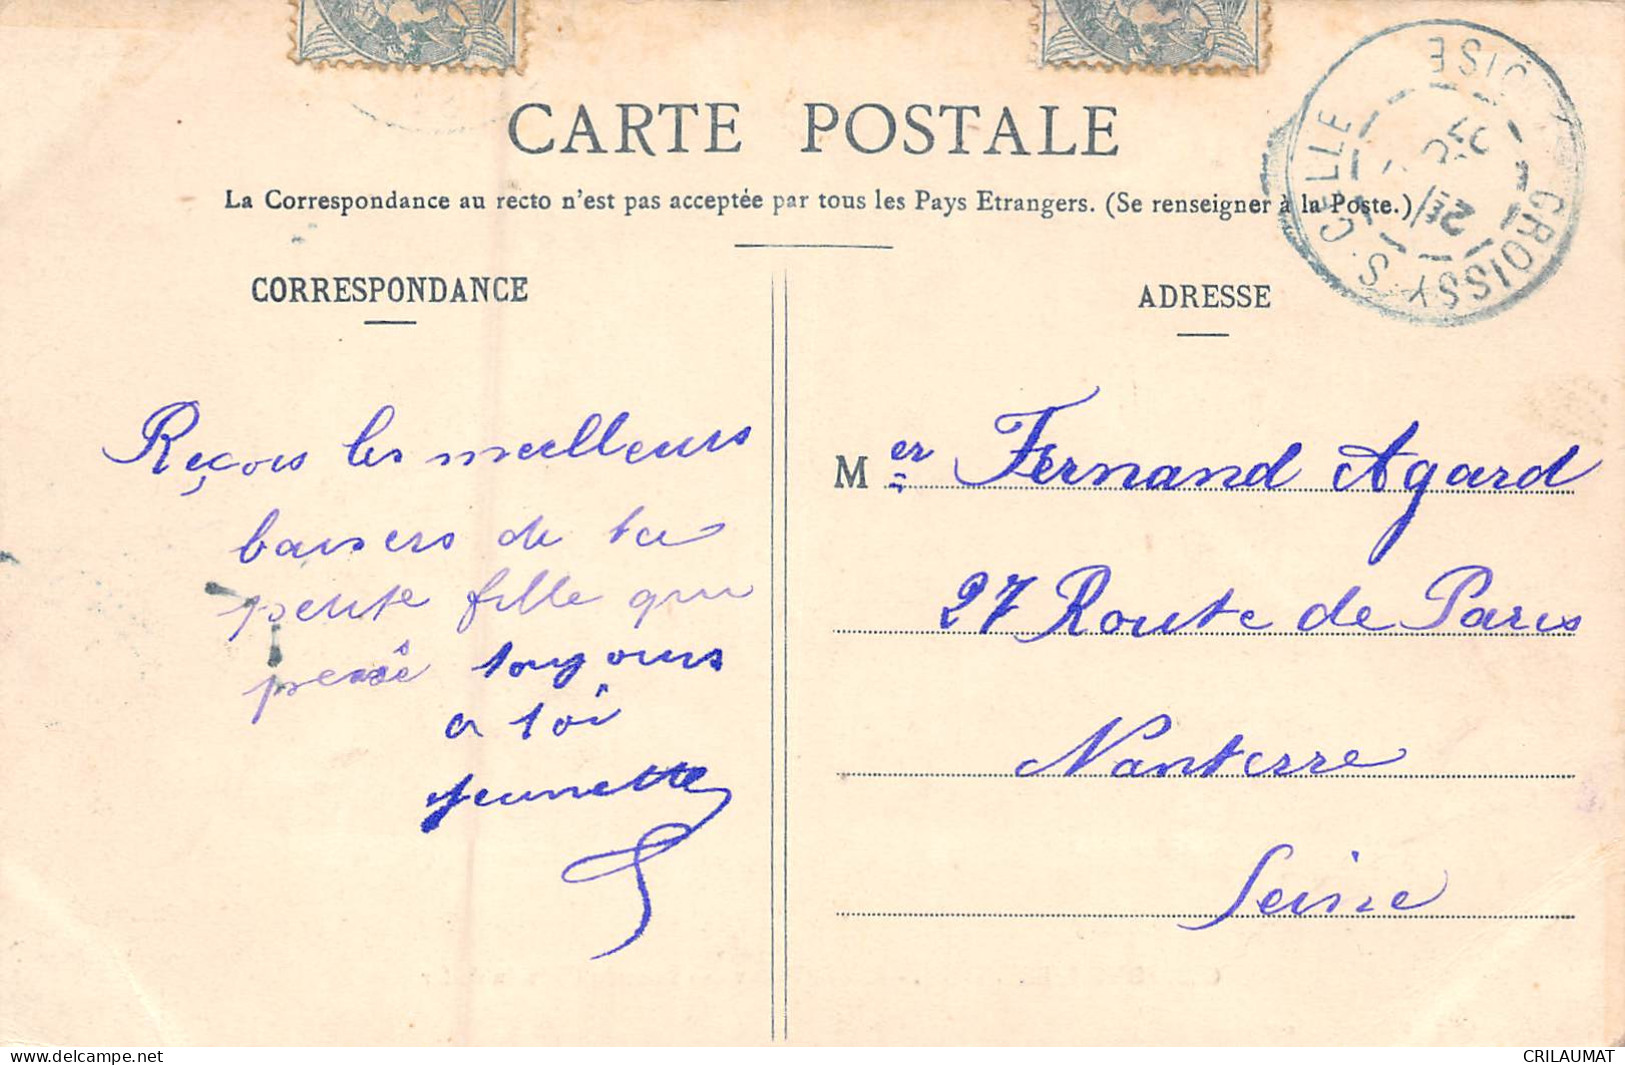 CARTE POSTALE
La Correspondance au recto n'est pas acceptée par tous les Pays Etrangers. (Se renseigner à la Poste.)
CROISSY-S-CELLE
OISE
CORRESPONDANCE
Reçois les meilleurs
baisers de ta
petite fille qui
pense toujours
a toi
Jeunette
ADRESSE
Mer Fernand Agard
27 Route de Paris
Nanterre
Seine
www.delcampe.net
CRILAUMAT